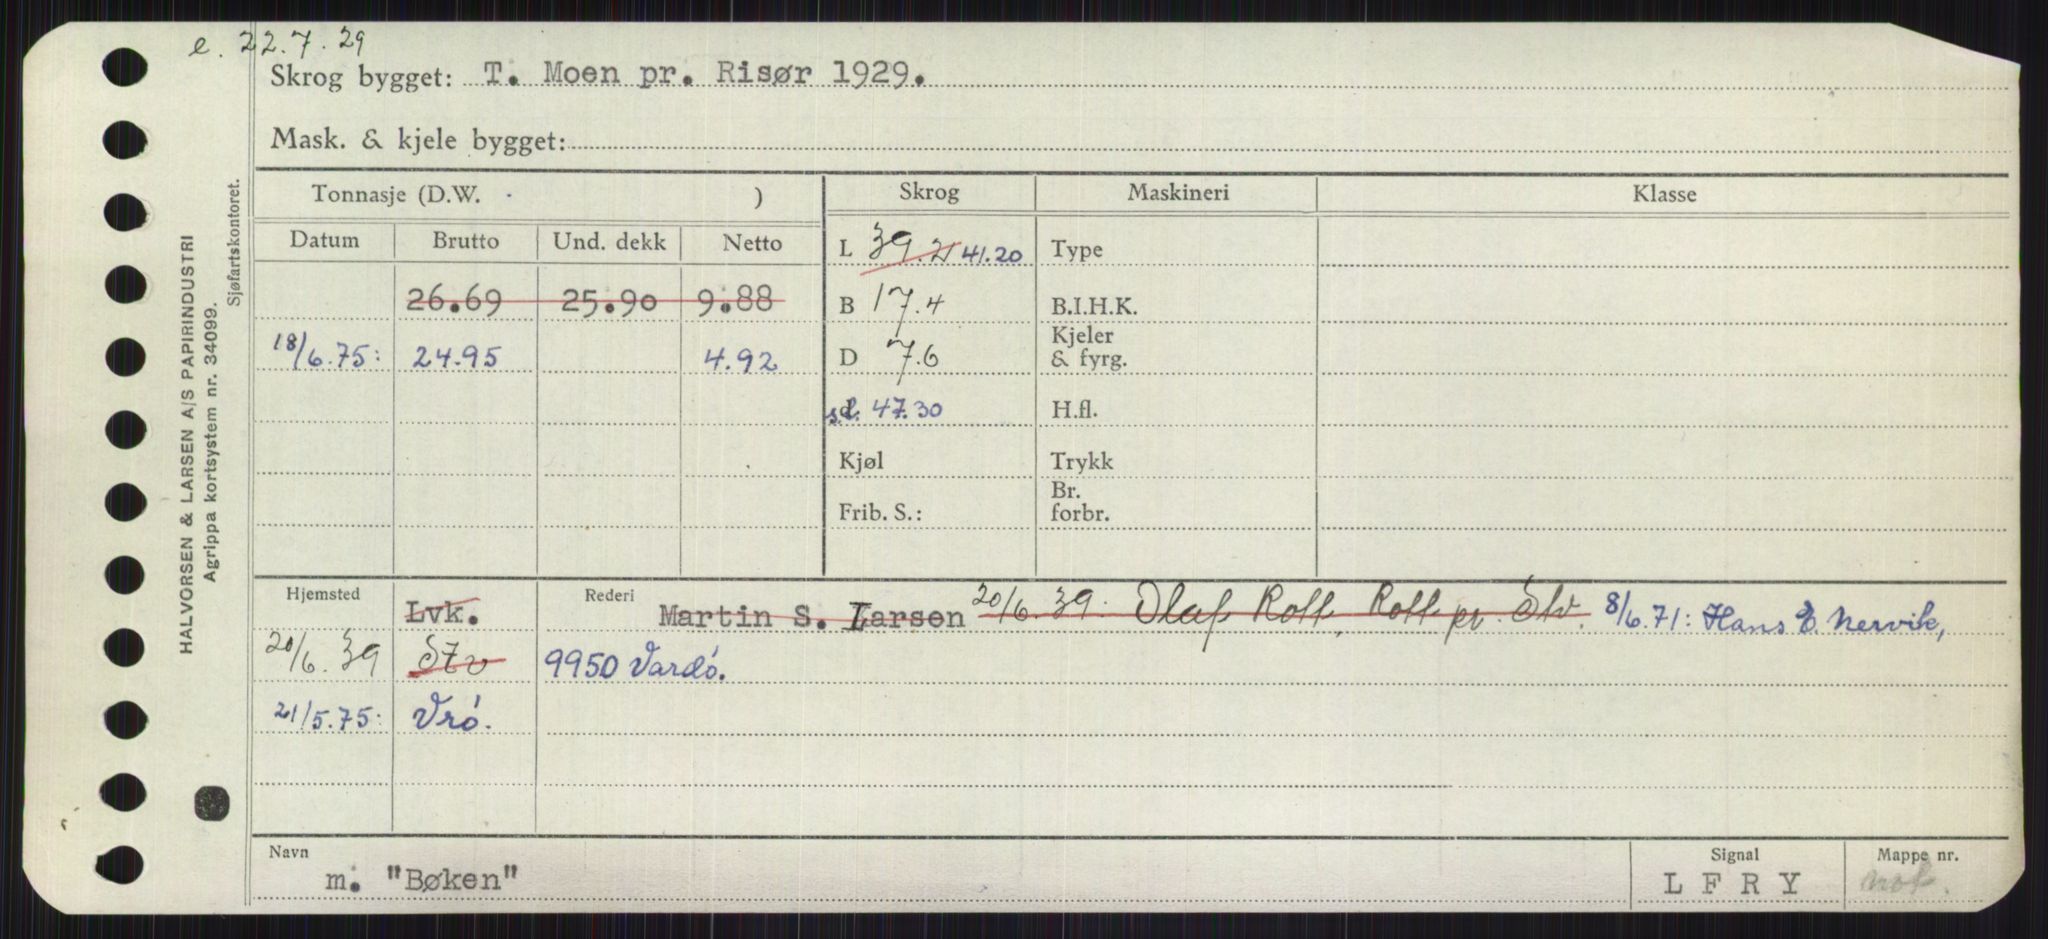 e. 22.7.29
Skrog bygget: T. Moen pr. Risør 1929.
Mask. & kjele bygget:
HALVORSEN & LARSEN A/S PAPIRINDUSTRI
Agrippa kortsystem nr. 34099.
Sjøfartskontoret.
Tonnasje (D.W. ) Skrog Maskineri Klasse
Datum Brutto Und. dekk Netto
L 39.21 41.20 Type
26.69 25.90 9.88 B 17.4 B.I.H.K.
18/6.75: 24.95 4.92 D 7.6 Kjeler & fyrg.
s.l. 47.30 H.fl.
Kjøl Trykk
Frib. S.: Br. forbr.
Hjemsted Lvk. Rederi Martin S. Larsen 20/6.39. Olaf Roll, Roll pr. Stv. 8/6.71: Hans E. Nervik,
20/6.39 Stv 9950 Vardø.
21/5.75: Vrø.
Navn Signal Mappe nr.
m. "Bøken" L F R Y mot.